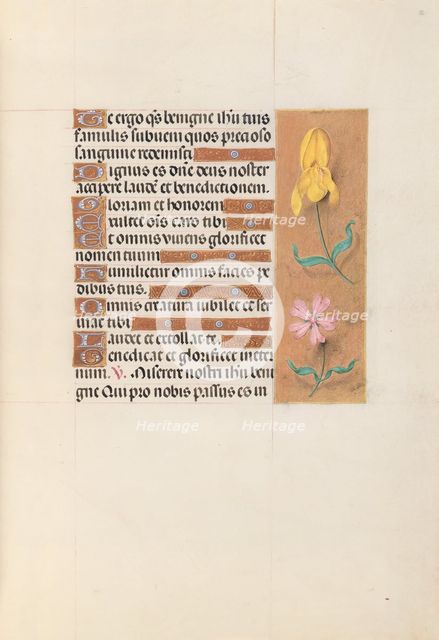 Te ergo q̄s benigne ihū tuis
famulis subueni quos precioso
sanguine redemisti.
Dignus es dñe deus noster
accipere laudē et benedictionem.
Gloriam et honorem
tibi
Et omnis viuens glorificet
nomen tuum
Humilietur omnis facies pe
dibus tuis.
Omnis creatura iubilet et ser
uiat tibi
Laudet et extollat te.
Benedicat et glorificet in eter
num. V. Miserere nostri ihū beni
gne Qui pro nobis passus es in
Heritage
Heritage
Heritage
Heritage
Heritage
Heritage